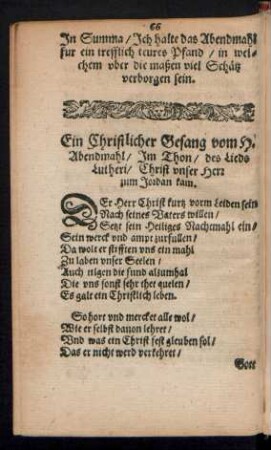 66
In Summa / Ich halte das Abendmahl
fur ein trefflich teures Pfand / in wel-
chem vber die maßen viel Schätz
verborgen sein.
Ein Christlicher Gesang vom H.
Abendmahl / Im Thon / des Lieds
Lutheri / Christ vnser Herr
zum Jordan kam.
DEr Herr Christ kurtz vorm Leiden sein
Nach seines Vaters willen /
Setzt sein Heiliges Nachtmahl ein /
Sein werck vnd ampt zurfullen /
Da wolt er stifften vns ein mahl
Zu laben vnser Seelen /
Auch tilgen die sund allzumal
Die vns sonst sehr thet quelen /
Es galt ein Christlich leben.
So hort vnd mercket alle wol /
Wie er selbst dauon lehret /
Vnd was ein Christ fest gleuben sol /
Das er nicht werd verkehret /
Gott